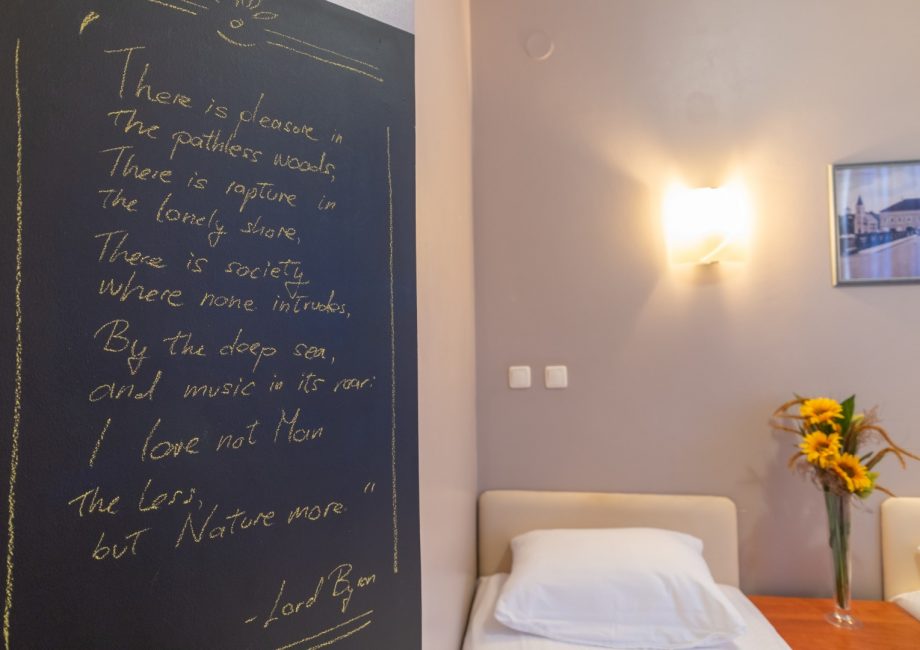 "There is pleasure in
The pathless woods,
There is rapture in
the lonely shore,
There is society
where none intrudes,
By the deep sea,
and music in its roar:
I love not Man
the Less,
but Nature more."
- Lord Byron